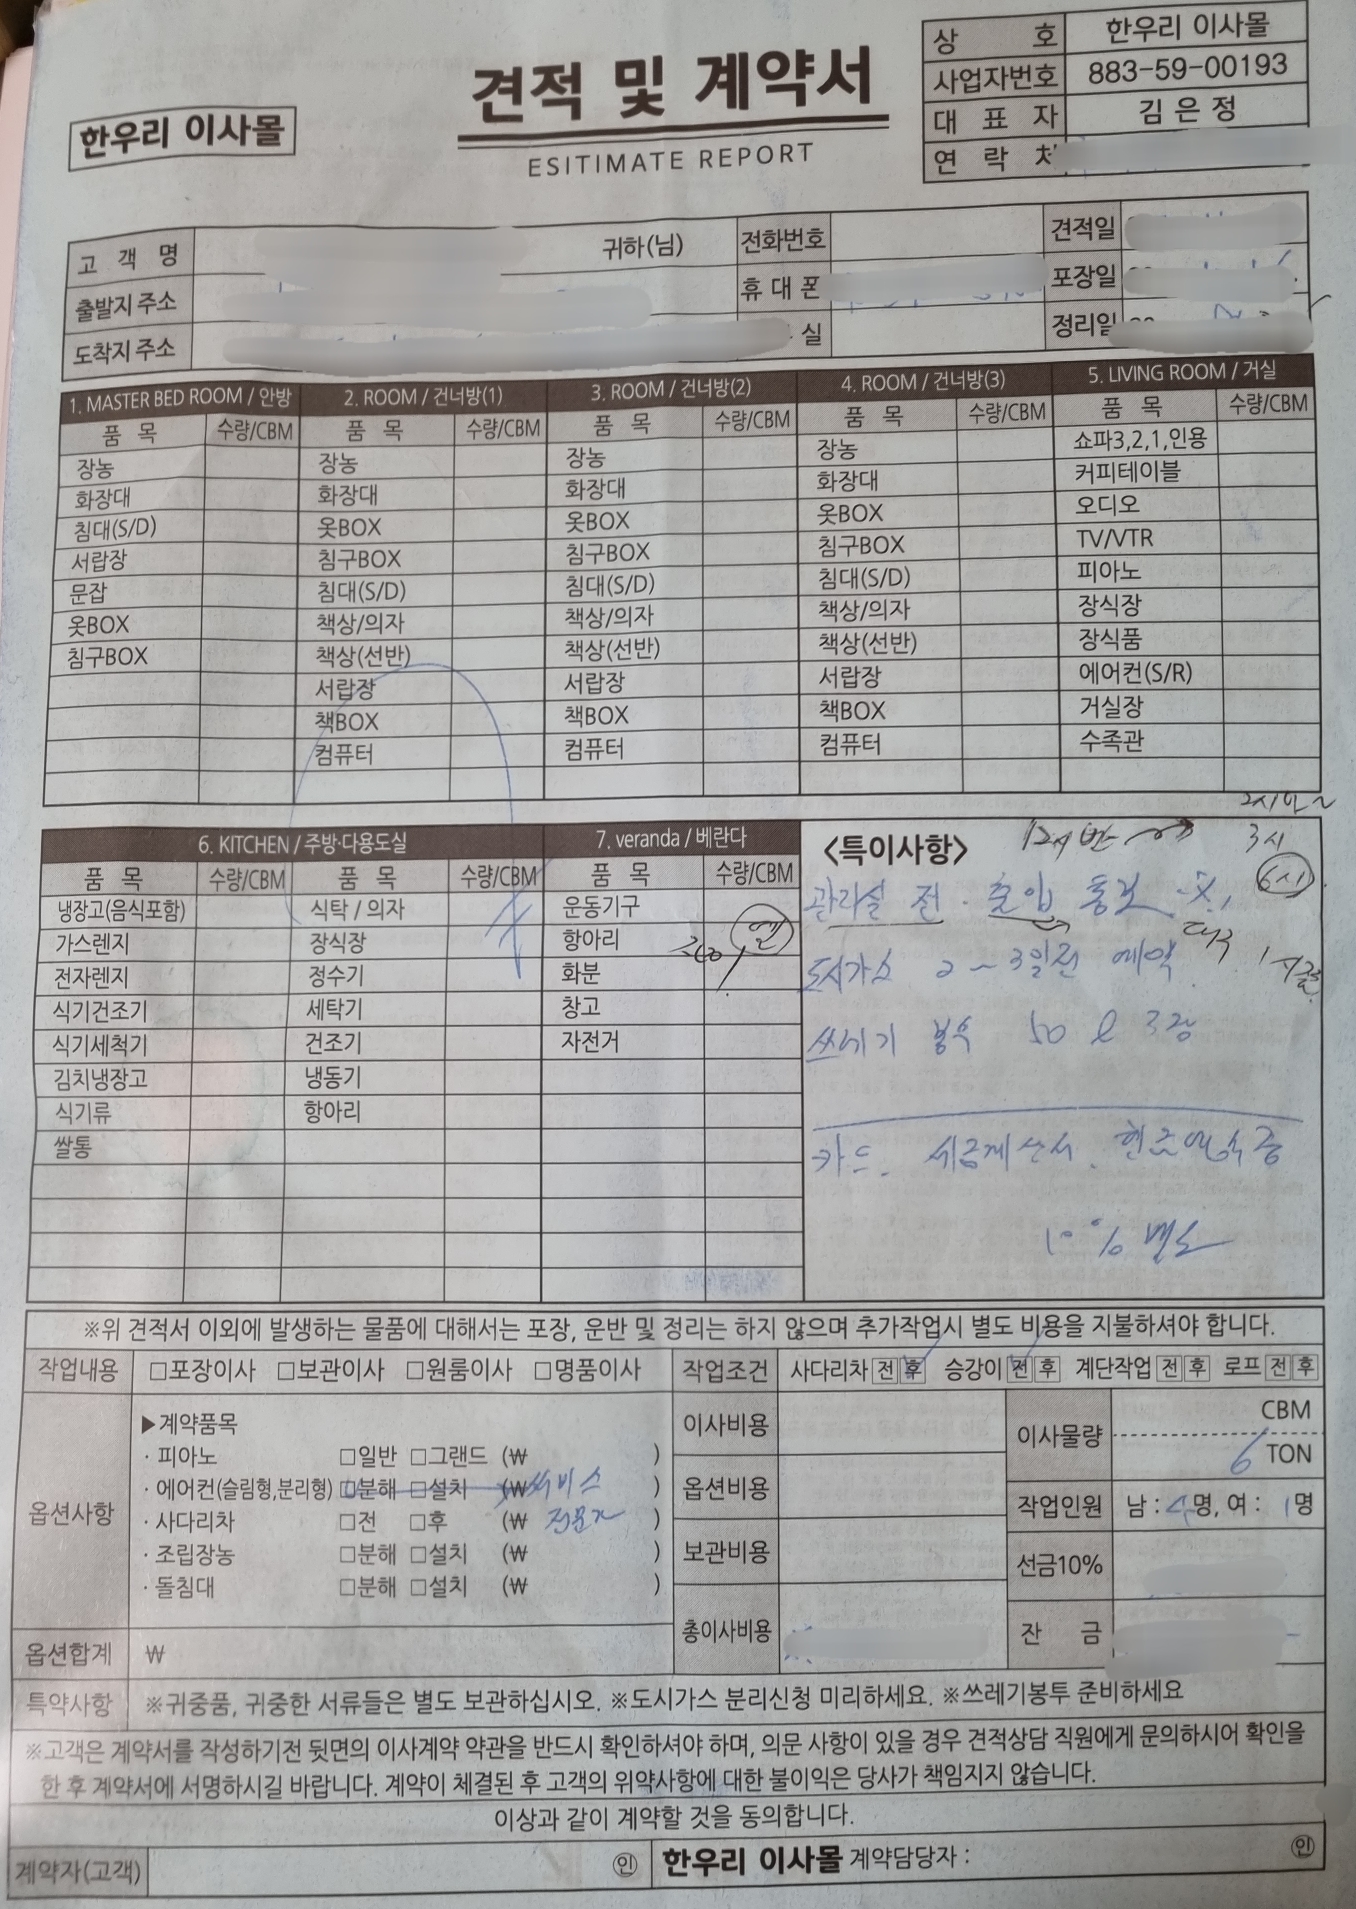 한우리 이사몰
견적 및 계약서
ESITIMATE REPORT
상 호 한우리 이사몰
사업자번호 883-59-00193
대 표 자 김은정
연 락 처
고 객 명 귀하(님) 전화번호 견적일
출발지 주소 휴 대 폰 포장일
도착지 주소 실 정리일
1. MASTER BED ROOM / 안방 2. ROOM / 건너방(1) 3. ROOM / 건너방(2) 4. ROOM / 건너방(3) 5. LIVING ROOM / 거실
품 목 수량/CBM 품 목 수량/CBM 품 목 수량/CBM 품 목 수량/CBM 품 목 수량/CBM
장농 장농 장농 장농 쇼파3,2,1,인용
화장대 화장대 화장대 화장대 커피테이블
침대(S/D) 옷BOX 옷BOX 옷BOX 오디오
서랍장 침구BOX 침구BOX 침구BOX TV/VTR
문잡 침대(S/D) 침대(S/D) 침대(S/D) 피아노
옷BOX 책상/의자 책상/의자 책상/의자 장식장
침구BOX 책상(선반) 책상(선반) 책상(선반) 장식품
서랍장 서랍장 서랍장 에어컨(S/R)
책BOX 책BOX 책BOX 거실장
컴퓨터 컴퓨터 컴퓨터 수족관
6. KITCHEN / 주방·다용도실 7. veranda / 베란다
품 목 수량/CBM 품 목 수량/CBM 품 목 수량/CBM
냉장고(음식포함) 식탁 / 의자 운동기구
가스렌지 장식장 항아리
전자렌지 정수기 화분
식기건조기 세탁기 창고
식기세척기 건조기 자전거
김치냉장고 냉동기
식기류 항아리
쌀통
<특이사항>
12시 반 3시
6시
관리실 전·출입 통보
도시가스 2~3일전 예약
쓰레기 봉투 50ℓ 3장
카드. 세금계산서. 현금영수증
10% 별도
※위 견적서 이외에 발생하는 물품에 대해서는 포장, 운반 및 정리는 하지 않으며 추가작업시 별도 비용을 지불하셔야 합니다.
작업내용 □포장이사 □보관이사 □원룸이사 □명품이사 작업조건 사다리차 전 후 승강이 전 후 계단작업 전 후 로프 전 후
옵션사항
▶계약품목
· 피아노 □일반 □그랜드 (₩ )
· 에어컨(슬림형,분리형) □분해 □설치 (₩ 서비스 )
· 사다리차 □전 □후 (₩ )
· 조립장농 □분해 □설치 (₩ )
· 돌침대 □분해 □설치 (₩ )
옵션합계 ₩
이사비용
옵션비용
보관비용
총이사비용
이사물량 CBM
6 TON
작업인원 남 : 4명, 여 : 1명
선금10%
잔 금
특약사항 ※귀중품, 귀중한 서류들은 별도 보관하십시오. ※도시가스 분리신청 미리하세요. ※쓰레기봉투 준비하세요
※고객은 계약서를 작성하기전 뒷면의 이사계약 약관을 반드시 확인하셔야 하며, 의문 사항이 있을 경우 견적상담 직원에게 문의하시어 확인을
한 후 계약서에 서명하시길 바랍니다. 계약이 체결된 후 고객의 위약사항에 대한 불이익은 당사가 책임지지 않습니다.
이상과 같이 계약할 것을 동의합니다.
계약자(고객) 인 한우리 이사몰 계약담당자 : 인